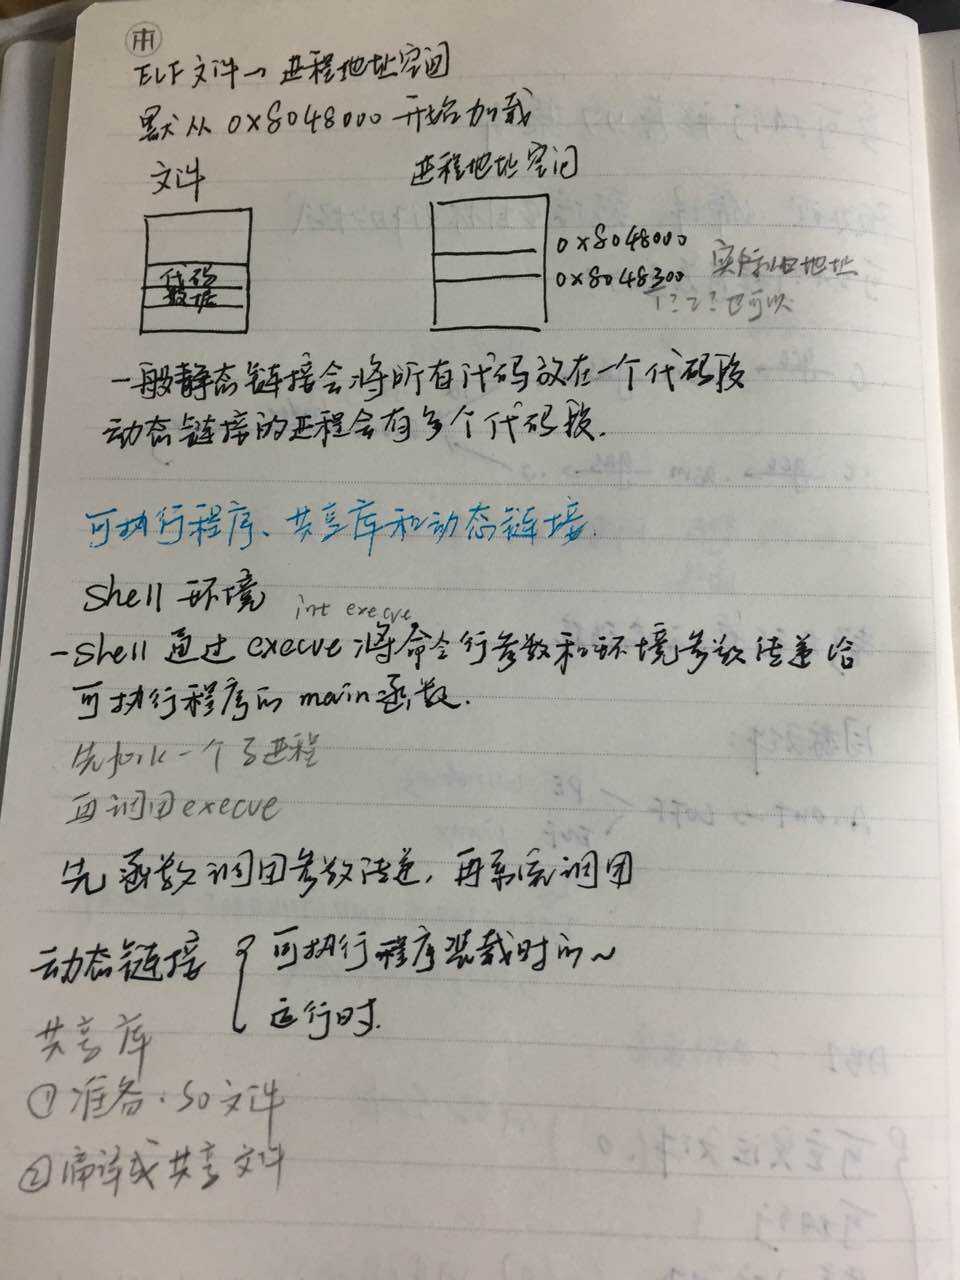 ELF 文件→ 进程地址空间
默认从 0x8048000 开始加载
文件
进程地址空间
0x8048000
0x8048300 实际入口地址
1? 2? 也可以
代码
数据
一般静态链接会将所有代码放在一个代码段
动态链接的进程会有多个代码段.
可执行程序、共享库和动态链接.
Shell 环境 int execve
-shell 通过 execve 将命令行参数和环境参数传递给
可执行程序的 main 函数.
先fork 一个子进程
再调用 execve
先函数调用参数传递, 再系统调用
动态链接 { 可执行程序装载时的~
运行时.
共享库
① 准备 .so 文件
② 编译成共享文件